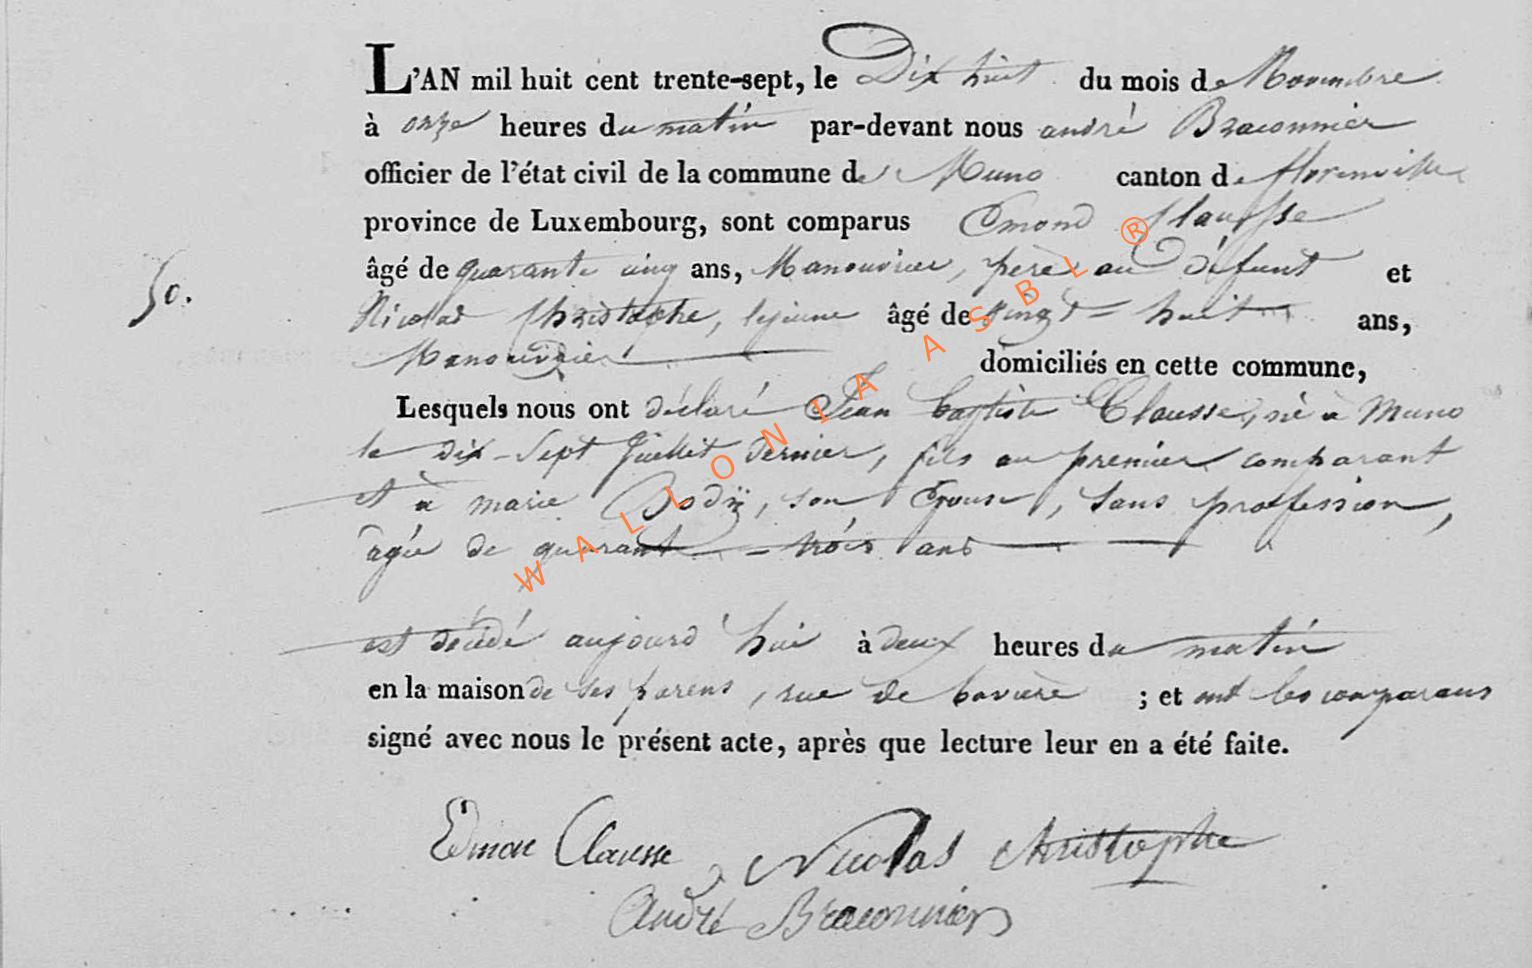 L'AN mil huit cent trente-sept, le Dix huit du mois de Novembre
à onze heures du matin par-devant nous andré Braconnier
officier de l'état civil de la commune de Muno canton de florenville
province de Luxembourg, sont comparus Emond Clausse
âgé de quarante cinq ans, Manouvrier, père au défunt et
Nicolas Christophe, lejeune âgé de vingt-huit ans,
Manouvrier domiciliés en cette commune,
50.
Lesquels nous ont déclaré Jean baptiste Clausse, né à Muno
le dix-sept Juillet dernier, fils au premier comparant
et à marie Bodÿ, son Epouse, sans proffession,
âgée de quarante-trois ans
est décédé aujourd'hui à deux heures du matin
en la maison de ses parens, rue de bavière ; et ont les comparans
signé avec nous le présent acte, après que lecture leur en a été faite.
Edmon Clausse Nicolas Christophe
André Braconnier
WALLONIA ASBL ®